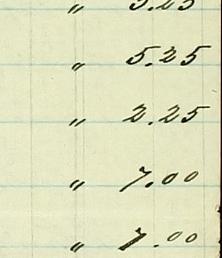 "
" 5.25
" 2.25
" 7.00
" 7.00